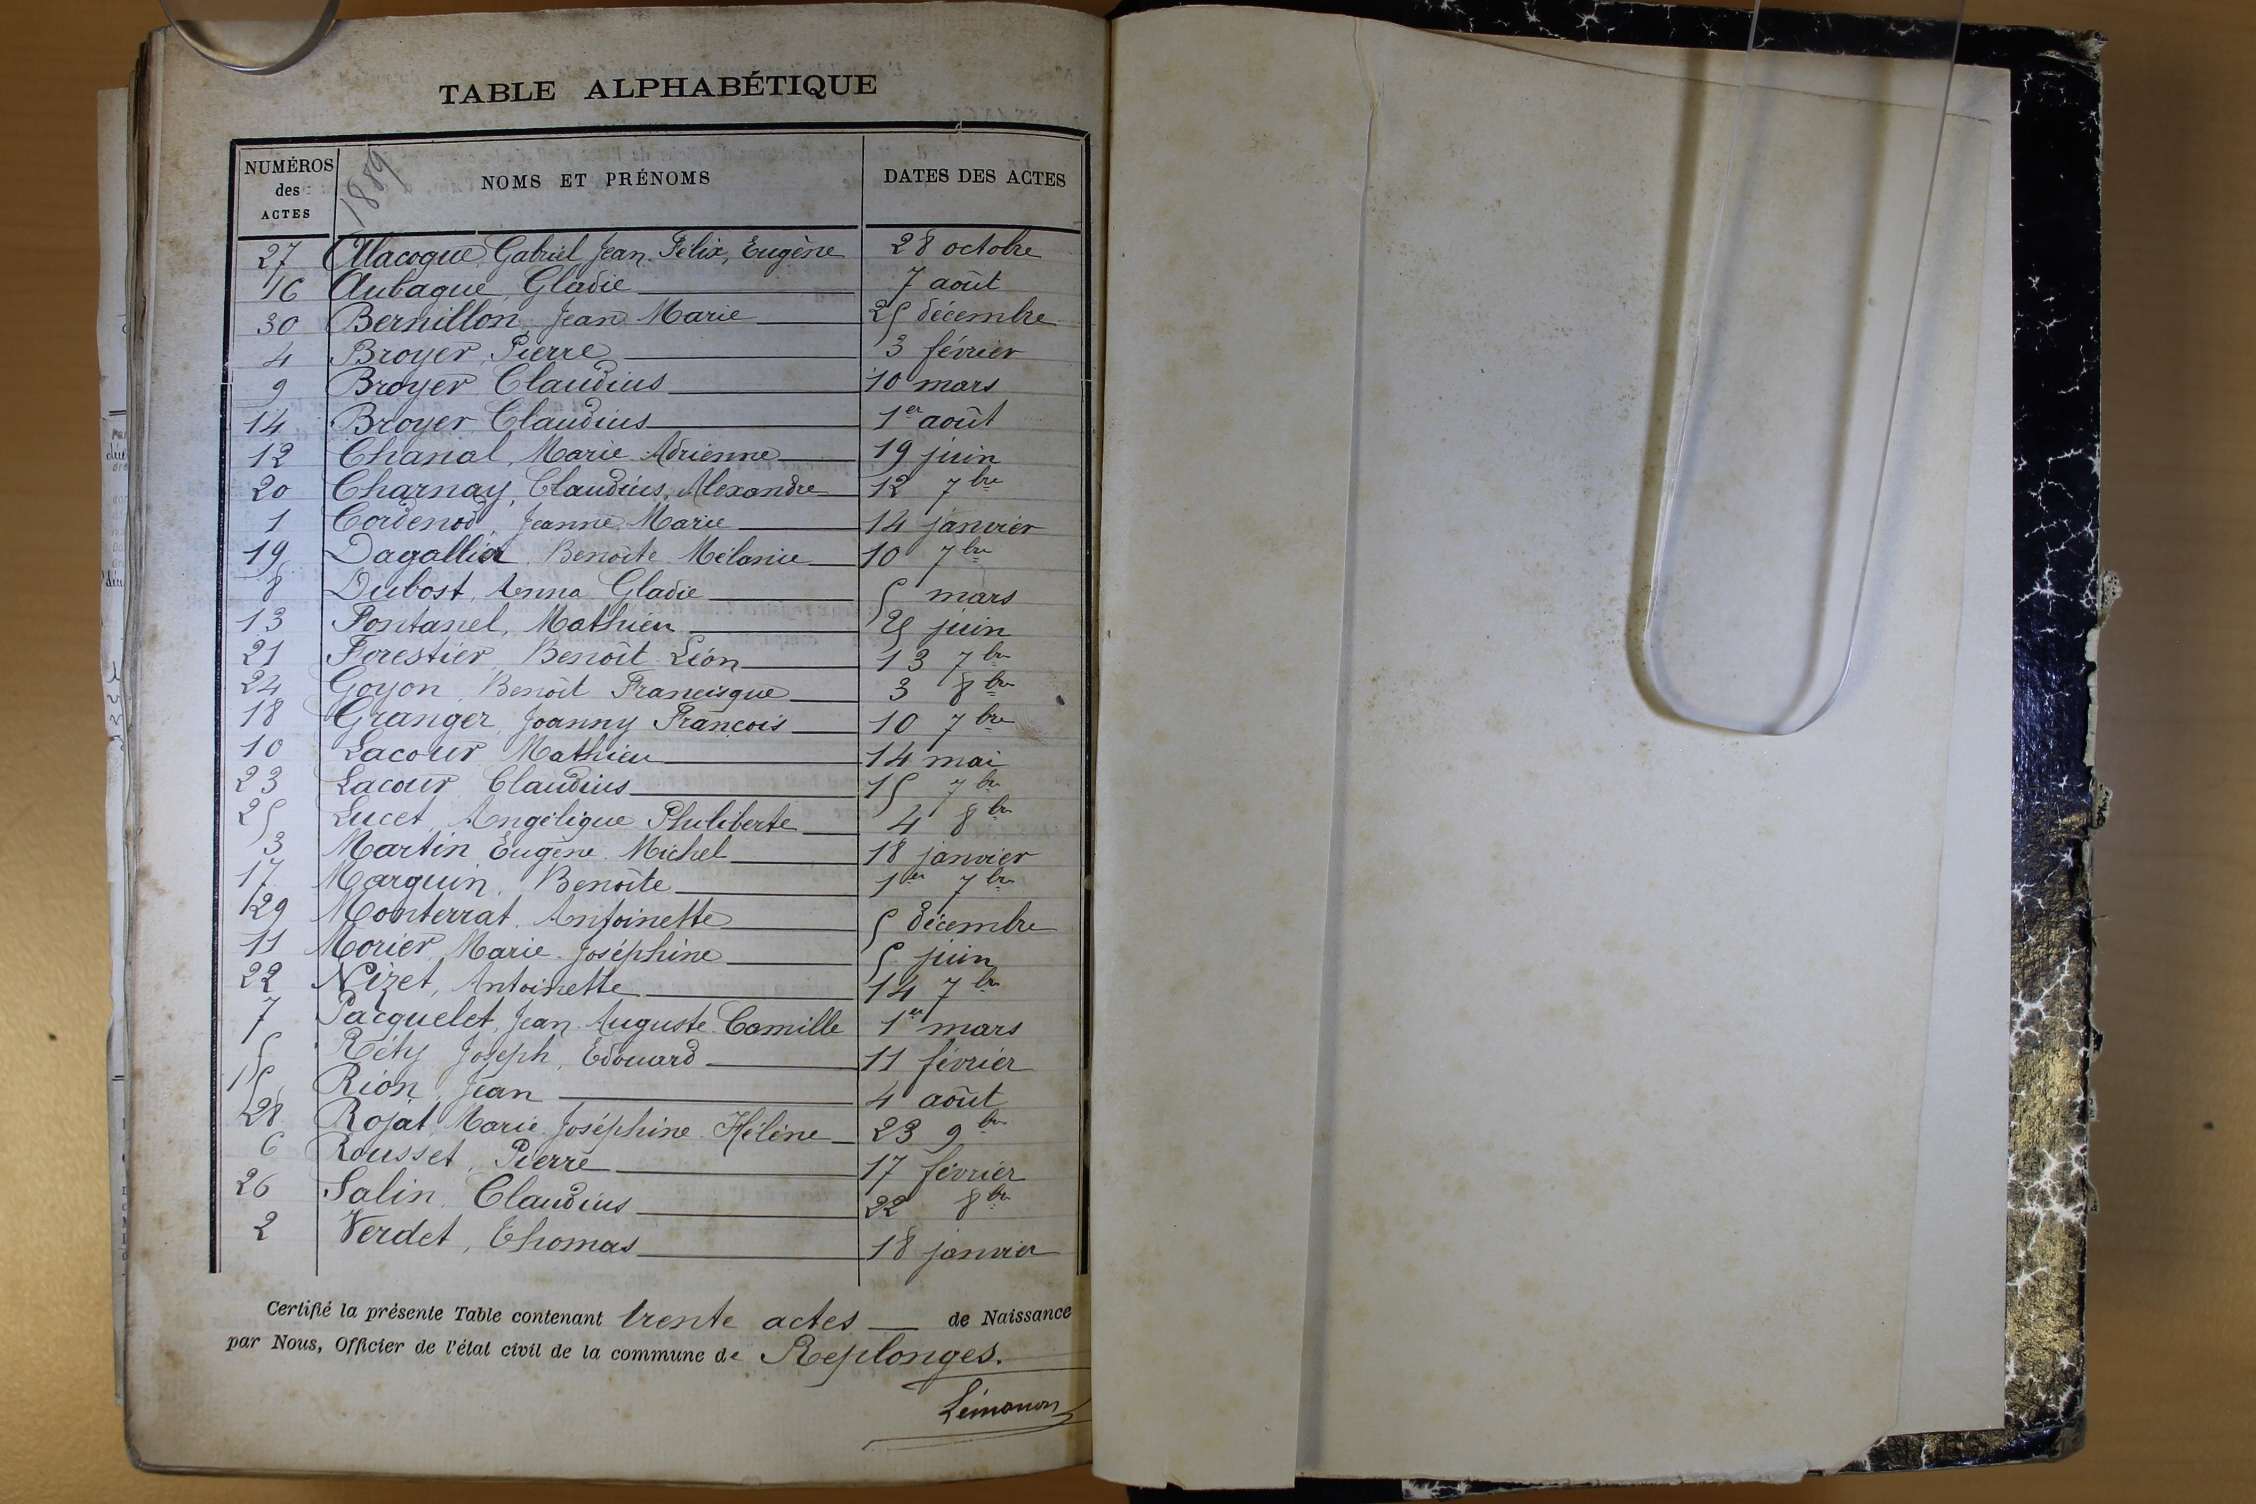 TABLE ALPHABÉTIQUE
NUMÉROS des ACTES 1889 NOMS ET PRÉNOMS DATES DES ACTES
27 Alacoque, Gabriel Jean Félix, Eugène 28 octobre
16 Aubague, Gladie 7 août
30 Bernillon, Jean Marie 25 décembre
4 Broyer, Pierre 3 février
9 Broyer Claudius 10 mars
14 Broyer Claudius 1er août
12 Chanal, Marie Adrienne 19 juin
20 Charnay, Claudius, Alexandre 12 7bre
1 Cordenod, Jeanne Marie 14 janvier
19 Dagallier Benoîte Mélanie 10 7bre
8 Dubost, Anna Gladie 5 mars
13 Fontanel, Mathieu 25 juin
21 Forestier, Benoît Léon 13 7bre
24 Goyon, Benoît Francisque 3 8bre
18 Granger, Joanny François 10 7bre
10 Lacour Mathieu 14 mai
23 Lacour Claudius 15 7bre
25 Lucet, Angélique Philiberte 4 8bre
3 Martin Eugène Michel 18 janvier
17 Marquin, Benoîte 1er 7bre
29 Monterrat, Antoinette 5 décembre
11 Morier, Marie Joséphine 5 juin
22 Nizet, Antoinette 14 7bre
7 Pacquelet, Jean Auguste Camille 1er mars
5 Réty Joseph, Edouard 11 février
15 Rion, Jean 4 août
28 Rojat, Marie Joséphine Hélène 23 9bre
6 Rousset, Pierre 17 février
26 Salin, Claudius 22 8bre
2 Verdet, Thomas 18 janvier
Certifié la présente Table contenant trente actes de Naissance
par Nous, Officier de l'état civil de la commune de Replonges.
Lémonon